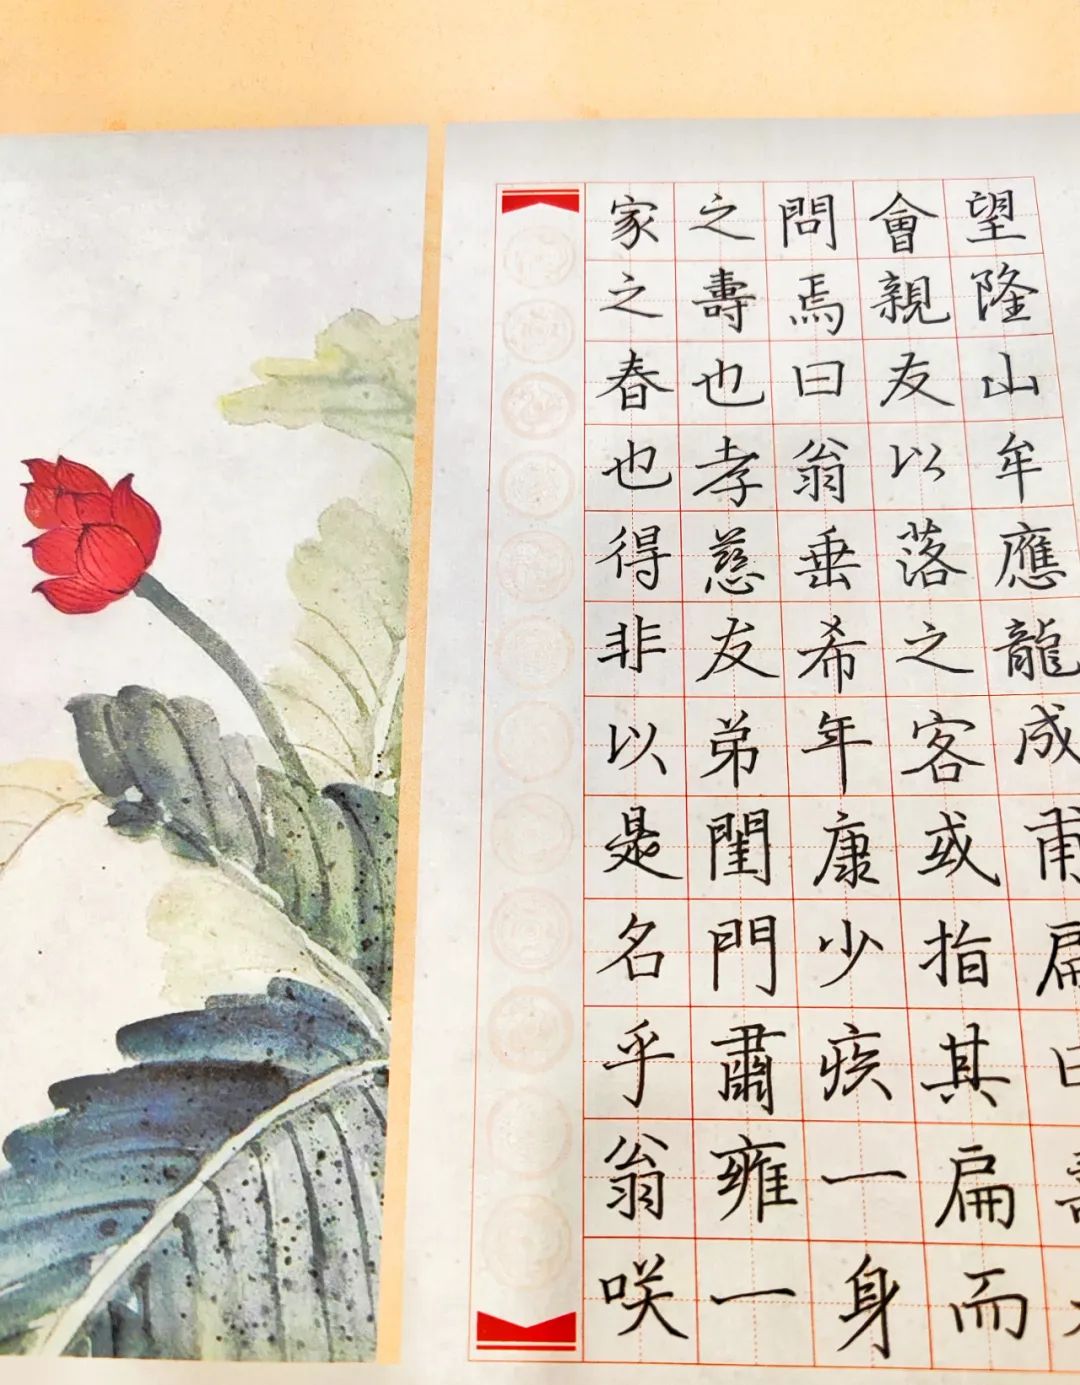 望隆山牟應龍成甫扁
會親友以落之客或指其扁而
問焉曰翁垂希年康少疾一身
之壽也孝慈友弟閨門肅雍一
家之春也得非以是名乎翁咲